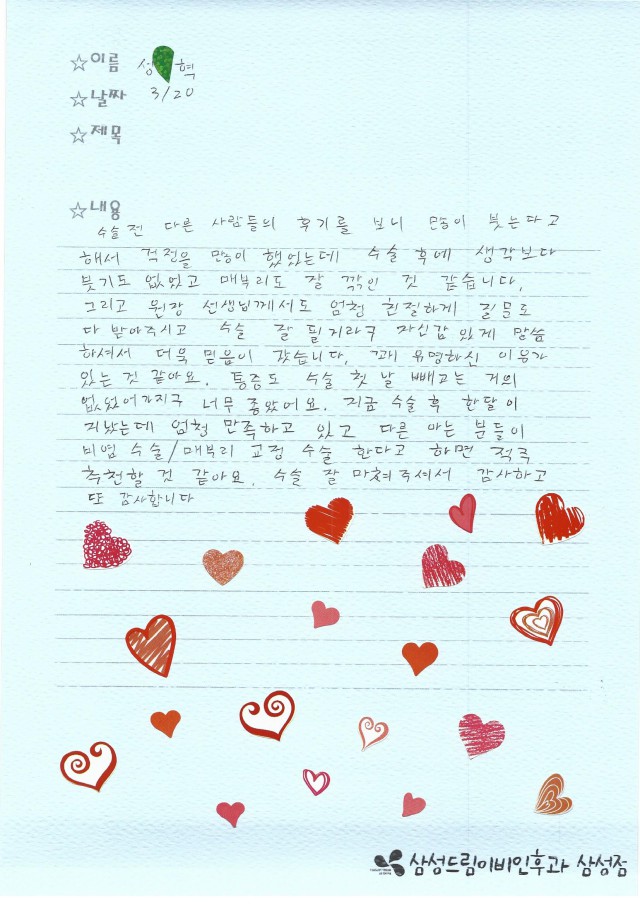 ☆이름 성 혁
☆날짜 3/20
☆제목
☆내용
수술전 다른 사람들의 후기를 보니 많이 붓는다고
해서 걱정을 많이 했었는데 수술 후에 생각보다
붓기도 없었고 매부리도 잘 깍인 것 같습니다.
그리고 원장 선생님께서도 엄청 친절하게 질문도
다 받아주시고 수술 잘 될거라구 자신감 있게 말씀
하셔서 더욱 믿음이 갔습니다. 괜히 유명하신 이유가
있는 것 같아요. 통증도 수술 첫 날 빼고는 거의
없었어가지구 너무 좋았어요. 지금 수술 후 한달이
지났는데 엄청 만족하고 있고 다른 아는 분들이
비염 수술/매부리 교정 수술 한다고 하면 적극
추천할 것 같아요. 수술 잘 마쳐주셔서 감사하고
또 감사합니다
삼성드림이비인후과 삼성점